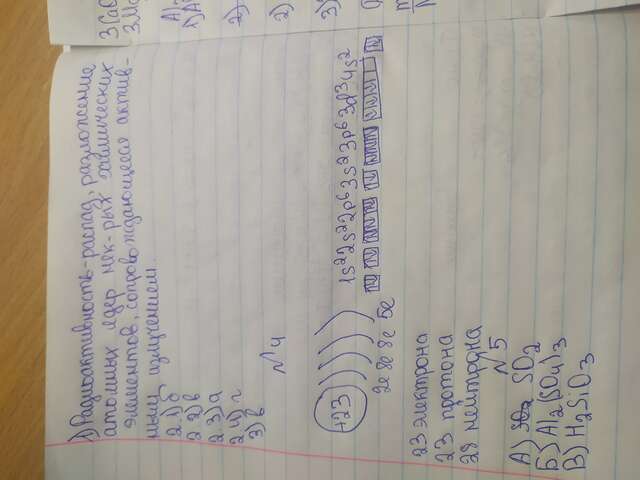 1) Радиоактивность - распад, разложение
атомных ядер нек-рых химических
элементов, сопровождающееся актив-
ным излучением.
2.1) б
2.2) в
2.3) а
2.4) г
3) в
№4
+23 ) ) ) ) 1s²2s²2p⁶3s²3p⁶3d³4s²
2e 8e 8e 5e
23 электрона
23 протона
28 нейтрона
№5
А) SO₂
Б) Al₂(SO₄)₃
В) H₂SiO₃